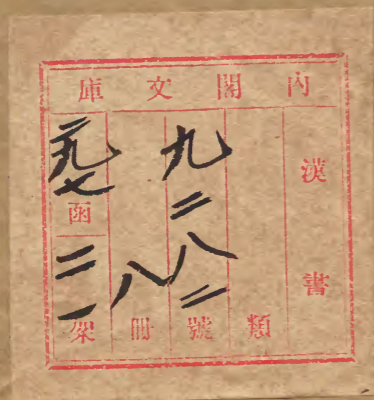 內閣文庫
漢書
類
九二八二號
八冊
二九七函
二一架